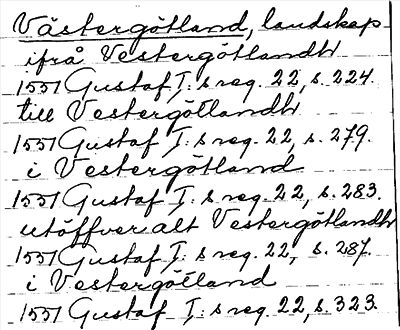 Västergötland, landskap
ifrå Vestergötlandh
1551 Gustaf I:s reg. 22, s. 224.
till Vestergötlandh
1551 Gustaf I:s reg. 22, s. 279.
i Vestergötland
1551 Gustaf I:s reg. 22, s. 283.
utöffver alt Vestergötlandh
1551 Gustaf I:s reg. 22, s. 287.
i Vestergötland
1551 Gustaf I:s reg. 22, s. 323.